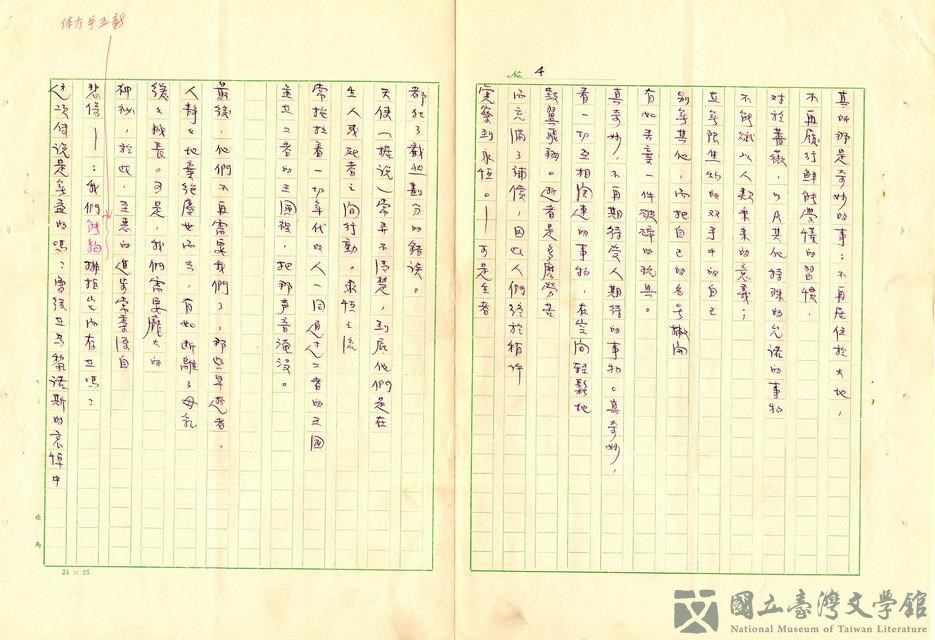 No. 4
真的那是奇妙的事：不再居住於大地，
不再履行鮮能學慣的習慣，
對於薔薇，以及其他特殊的允諾的事物
不能賦以人類未來的意義；
在無限焦灼的双手中的自己
别無其他，而把自己的名号撇開
有如丟棄一件破碎的玩具。
真奇妙，不再期待受人期待的事物。真奇妙，
看一切互相関連的事物，在空间轻鬆地
鼓翼飛翔。逝者是多麼勞苦
而充滿了補償，因此人們終於稍许
覚察到永恒。——可是生者
都犯了截然劃分的錯誤。
天使（據说）常弄不清楚，到底他們是在
生人或死者之间行動。永恒之流
常拖拉着一切年代的人一同
在二者的王国裡，把那声音淹没。
最後，他們不再需要我們了，那些早逝者，
人静々地棄絕塵世而去，有如断離了母乳
缓々成長。可是，我們需要龐大的
神秘，於此，至悪的進步常毒渡自
悲傷——：我們能夠擁抱它而存在嗎？
这项传说是無益的嗎？曾经在為黎諾斯的哀悼中
24 × 25
國立臺灣文學館
National Museum of Taiwan Literature